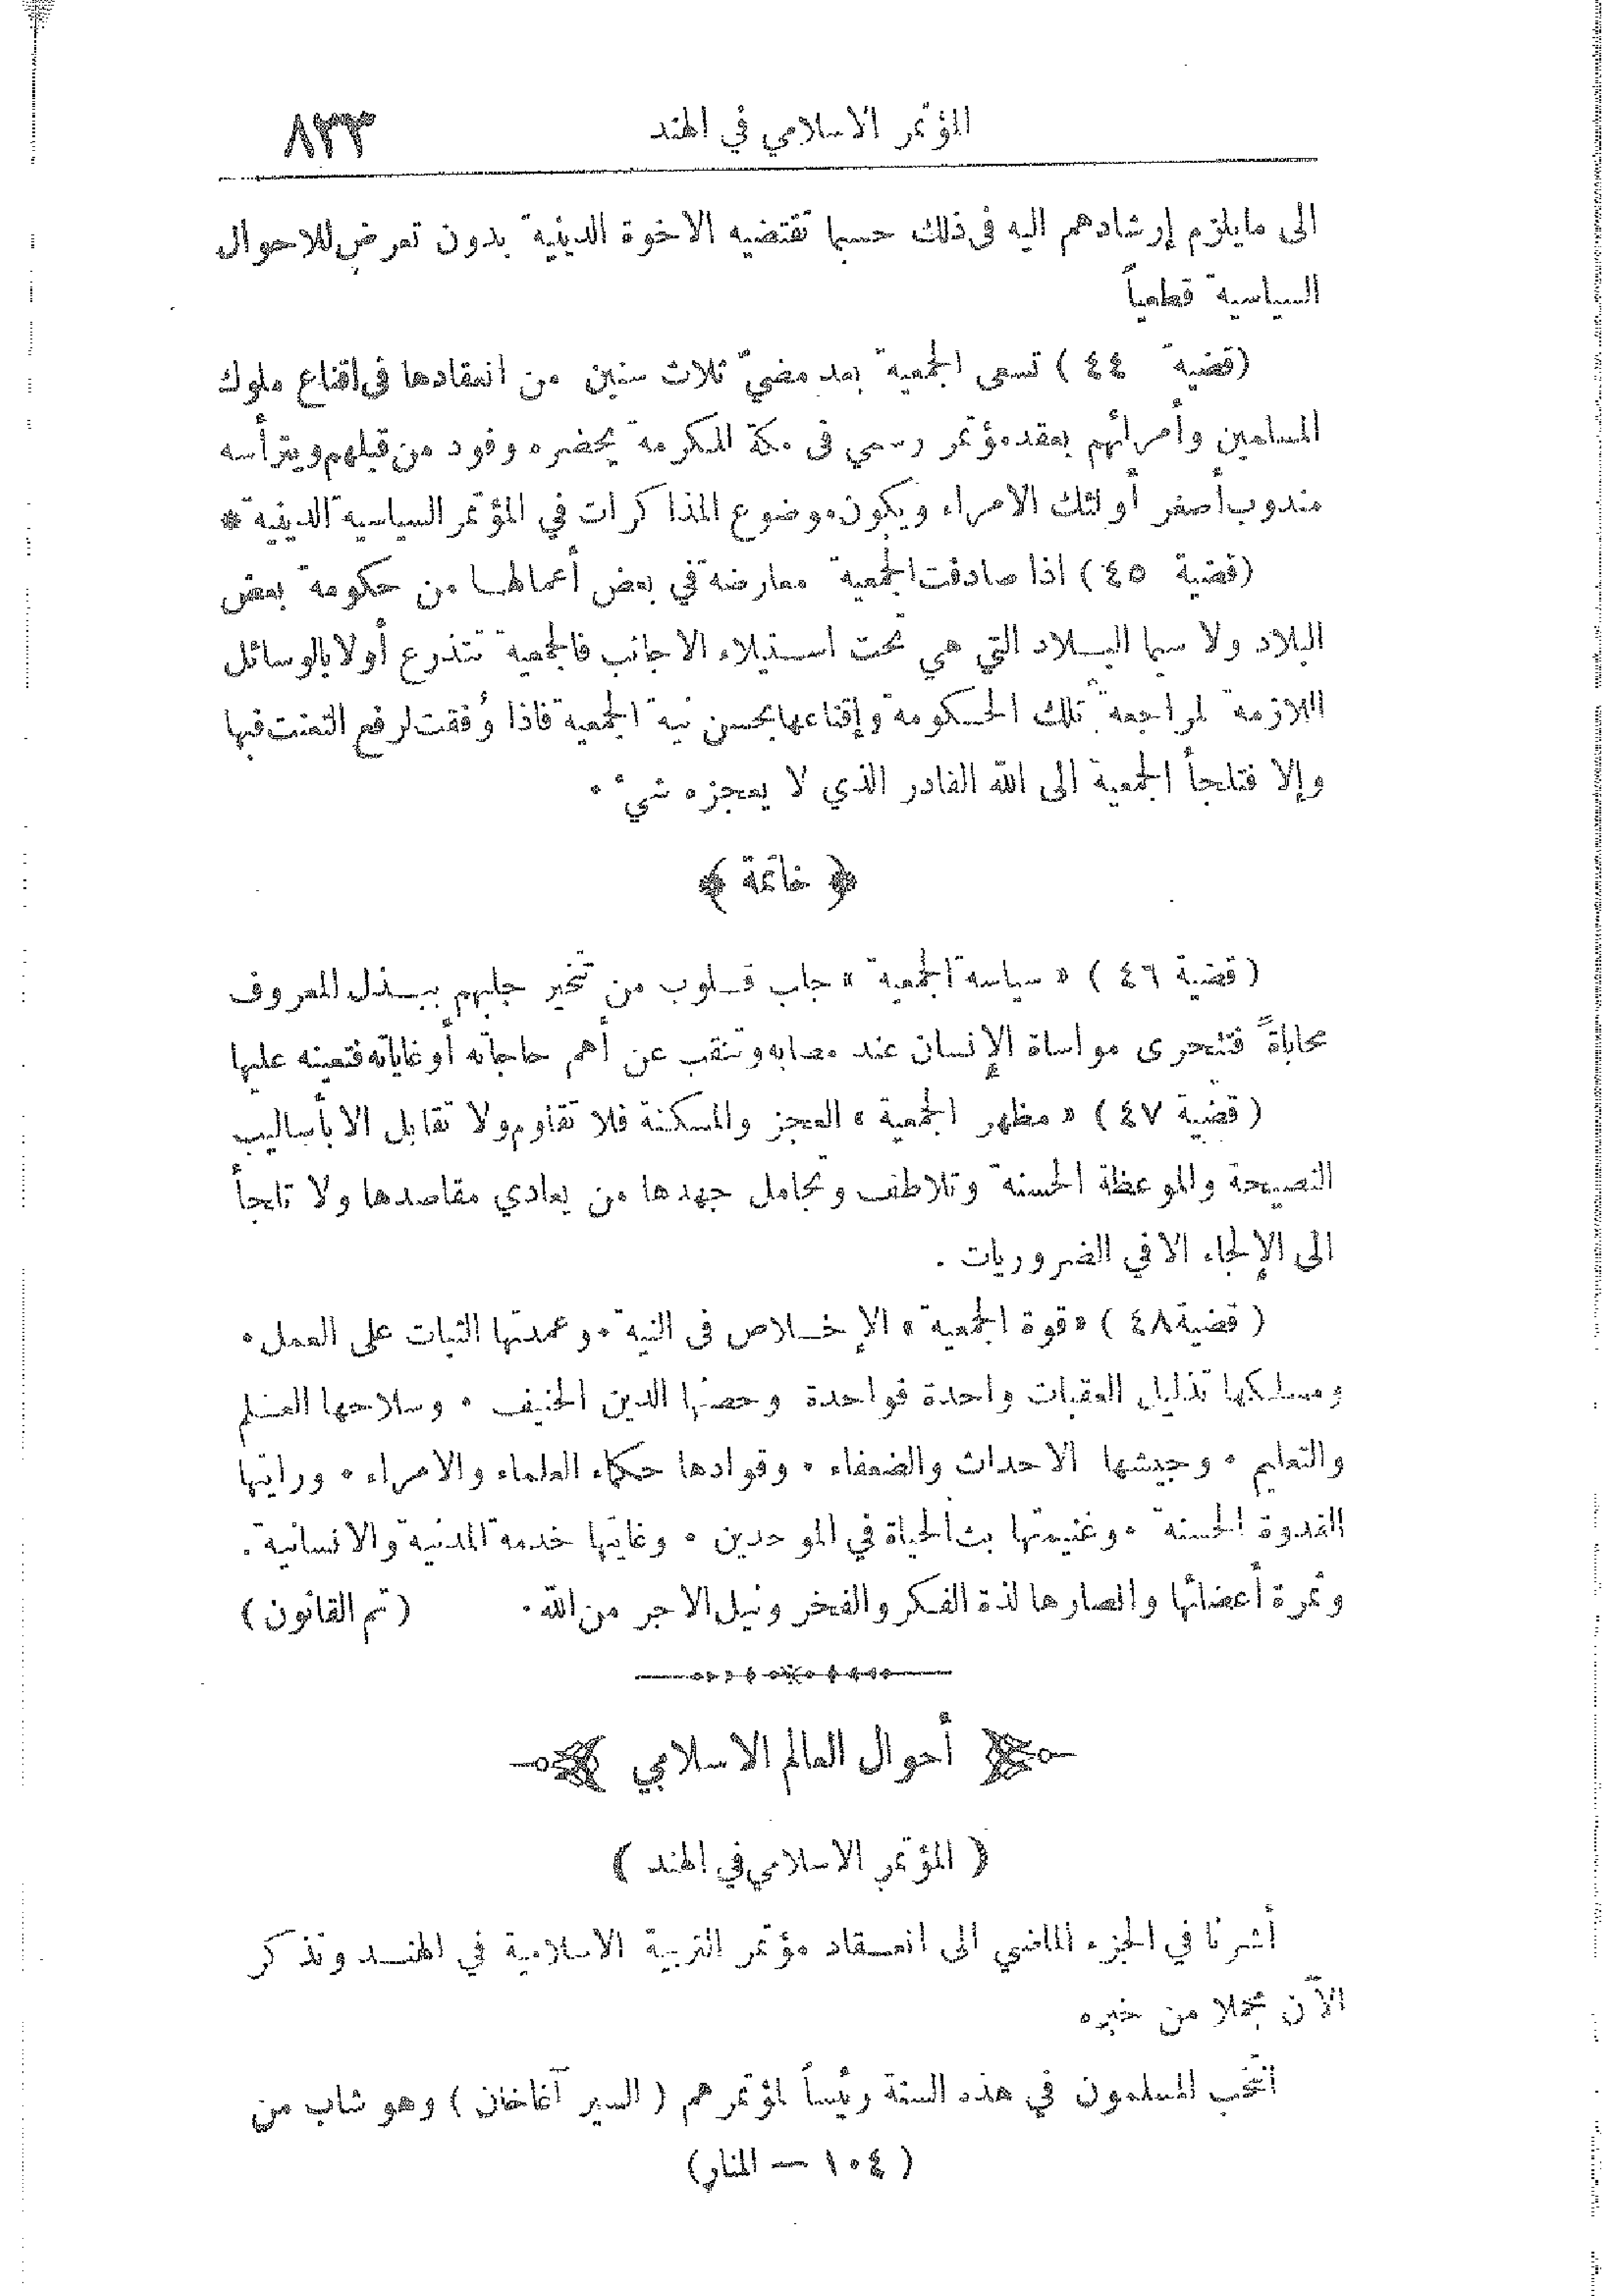 المؤتمر الاسلامي في الهند ٨٣٣
الى ما يلزم إرشادهم اليه في ذلك حسبما تقتضيه الاخوة الدينية بدون تعرض للاحوال
السياسية قطعياً
(قضية ٤٤) تسعى الجمعية بعد مضيّ ثلاث سنين من انعقادها في اقناع ملوك
المسلمين وأمرائهم بعقد مؤتمر رسمي في مكة المكرمة يحضره وفود من قبلهم ويترأسه
مندوب أصغر أولئك الامراء ويكون موضوع المذاكرات في المؤتمر السياسية الدينية *
(قضية ٤٥) اذا صادفت الجمعية معارضة في بعض أعمالها من حكومة بعض
البلاد ولا سيما البلاد التي هي تحت استيلاء الاجانب فالجمعية تتذرع أولا بالوسائل
اللازمة لمراجعة تلك الحكومة وإقناعها بحسن نية الجمعية فاذا وُفقت لرفع التعنت فبها
وإلا فتلجأ الجمعية الى الله القادر الذي لا يعجزه شيء ٠
﴿ خاتمة ﴾
(قضية ٤٦) « سياسة الجمعية » جلب قلوب من تتخير جلبهم ببذل المعروف
محاباةً فتتحرى مواساة الإنسان عند مصابه وتنقب عن أهم حاجاته أو غاياته فتعينه عليها
(قضية ٤٧) « مظهر الجمعية » العجز والمسكنة فلا تقاوم ولا تقابل الا بأساليب
النصيحة والموعظة الحسنة وتلاطف وتجامل جهدها من يعادي مقاصدها ولا تلجأ
الى الإلجاء الا في الضروريات .
(قضية ٤٨) « قوة الجمعية » الإخلاص في النية ٠ وعمدتها الثبات على العمل ٠
ومسلكها تذليل العقبات واحدة فواحدة وحصنها الدين الحنيف ٠ وسلاحها العلم
والتعليم ٠ وجيشها الاحداث والضعفاء ٠ وقوادها حكماء العلماء والامراء ٠ ورايتها
القدوة الحسنة ٠ وغنيمتها بث الحياة في الموحدين ٠ وغايتها خدمة المدنية والانسانية .
وثمرة أعضائها وانصارها لذة الفكر والفخر ونيل الاجر من الله ٠ (تم القانون)
أحوال العالم الاسلامي
﴿ المؤتمر الاسلامي في الهند ﴾
أشرنا في الجزء الماضي الى انعقاد مؤتمر التربية الاسلامية في الهند ونذكر
الآن مجملا من خبره
انتخب المسلمون في هذه السنة رئيساً لمؤتمرهم (السير آغاخان) وهو شاب من
(١٠٤ — المنار)